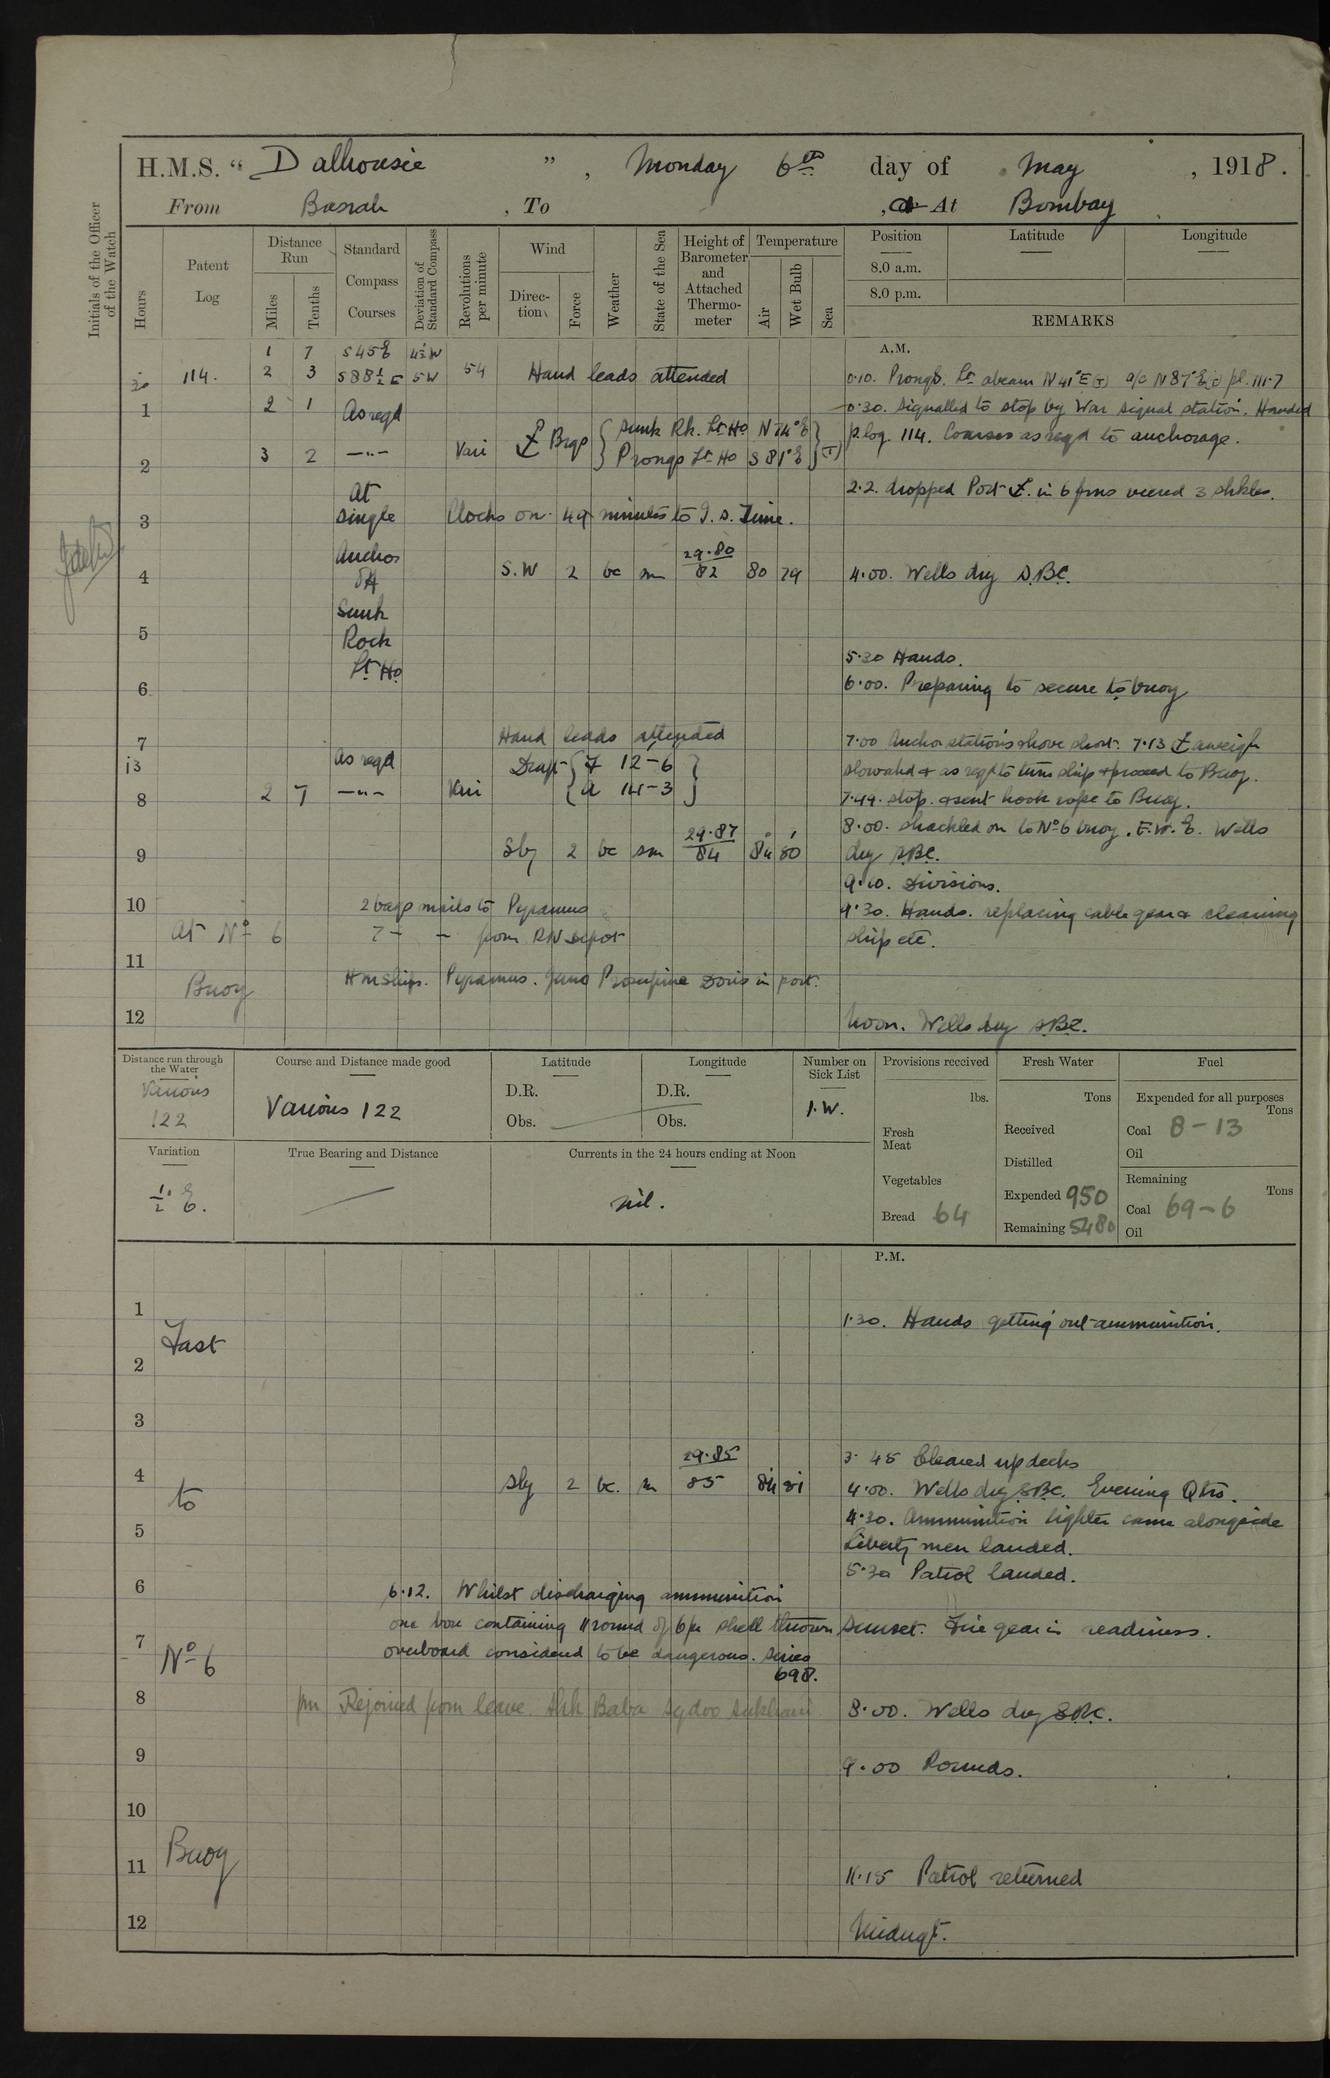 H.M.S. “ Dalhousie ” , Monday 6th day of May , 1918 .
From Basrah , To , At Bombay
Initials of the Officer of the Watch
Hours
Patent Log
Distance Run
Miles
Tenths
Standard Compass Courses
Deviation of Standard Compass
Revolutions per minute
Wind
Direction
Force
Weather
State of the Sea
Height of Barometer and Attached Thermometer
Temperature
Air
Wet Bulb
Sea
Position
Latitude
Longitude
8.0 a.m.
8.0 p.m.
REMARKS
A.M.
1 7 S45E 4½W
30 114. 2 3 S88½E 5W 54 Hand leads attended
0.10. Prongs. Lt abeam N41°E(T) a/c N87°E(c) pl. 111.7
1 2 1 As reqd
0.30. Signalled to stop by War signal station. Handed
p.log. 114. Courses as reqd to anchorage.
2 3 2 —"— Vari Brgs { Sunk Rk. Lt Ho N74°E
Prongs Lt Ho S81°E } (T)
2.2. dropped Port in 6 fms veered 3 shkles.
3 At single Clocks on 49 minutes to I.S. Time.
4 Anchor off S.W 2 bc m 29.80 82 80 79 4.00. Wells dry
5 Sunk Rock Lt Ho
5.30 Hands.
6 6.00. Preparing to secure to buoy
7 Hand leads attended
7.00 Anchor stations shove short. 7.13 aweigh
13 as reqd Draft { F 12-6
slow ahd & as reqd to turn ship & proceed to Buoy.
8 2 7 —"— Vari { A 14-3 }
7.49. stop. & sent hook rope to Buoy.
8.00. shackled on to No 6 buoy. F.W.E. Wells
9 Sly 2 bc m 29.87 84 84 80 dry
9.10. Divisions.
10 2 bags mails to Pyramus
9.30. Hands. replacing cable gear & cleaning
At No 6 7 - - from RN Depot
ship etc.
11 Buoy HM Ships. Pyramus. Juno Proserpine Doris in port.
12 Noon. Wells dry
Distance run through the Water
Various 122
Course and Distance made good
Various 122
Latitude
D.R.
Obs.
Longitude
D.R.
Obs.
Number on Sick List
1.W.
Provisions received
lbs.
Fresh Meat
Vegetables
Bread 64
Fresh Water
Tons
Received
Distilled
Expended 950
Remaining 5480
Fuel
Expended for all purposes
Tons
Coal 8-13
Oil
Remaining
Tons
Coal 69-6
Oil
Variation
½° E.
True Bearing and Distance
Currents in the 24 hours ending at Noon
nil.
P.M.
1 1.30. Hands getting out ammunition.
Fast
2
3
3.45 Cleared up decks
4 to Sly 2 bc. m 29.85 85 84 81 4.00. Wells dry Evening Qtrs.
4.30. Ammunition lighter came alongside
5 Liberty men landed.
5.30 Patrol landed.
6 6.12. Whilst discharging ammunition
one box containing 11 round of 6pr shell thrown
Sunset. Fire gear in readiness.
7 No 6 overboard considered to be dangerous. Series 698.
8 pm Rejoined from leave. Shk Baba Sydoo
8.00. Wells dry
9 9.00 Rounds.
10
Buoy
11 11.15 Patrol returned
12 Midngt.